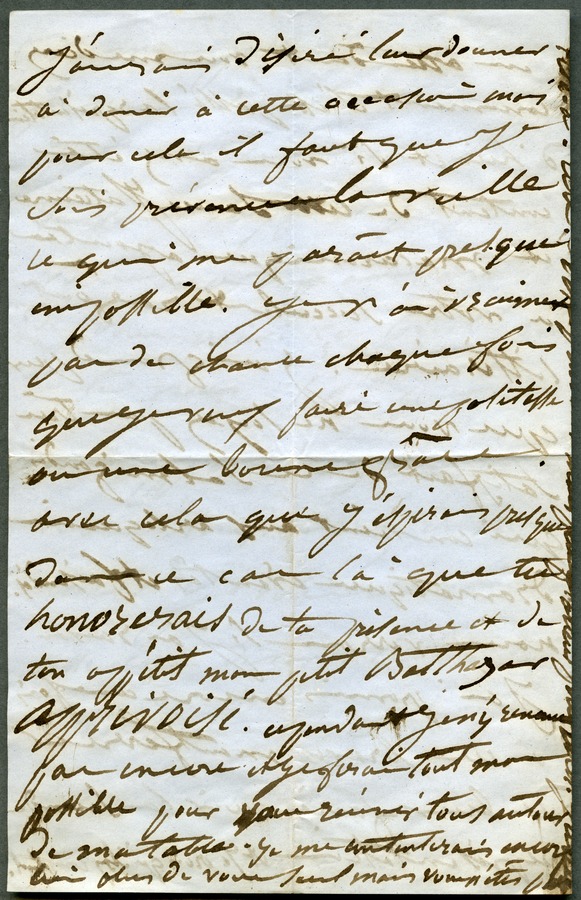 J'aurais désiré leur donner
à diner à cette occasion mais
pour cela il faut que je
sois prévenue la veille
ce qui me parait presque
impossible. Je n'ai vraiment
pas de chance chaque fois
que je veux faire une politesse
ou une bonne grâce.
avec cela que j'espérais presque
dans ce cas là que tu
honorerais de ta présence et de
ton appétit mon petit Balthazar
APPRIVOISÉ. cependant je n'y renonce
pas encore et je ferai tout mon
possible pour vous réunir tous autour
de ma table. Je me contenterais encore
bien de vous seul mais vous n'êtes